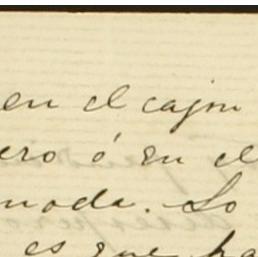 en el cajon
ero ó en el
moda. Lo
es que ha